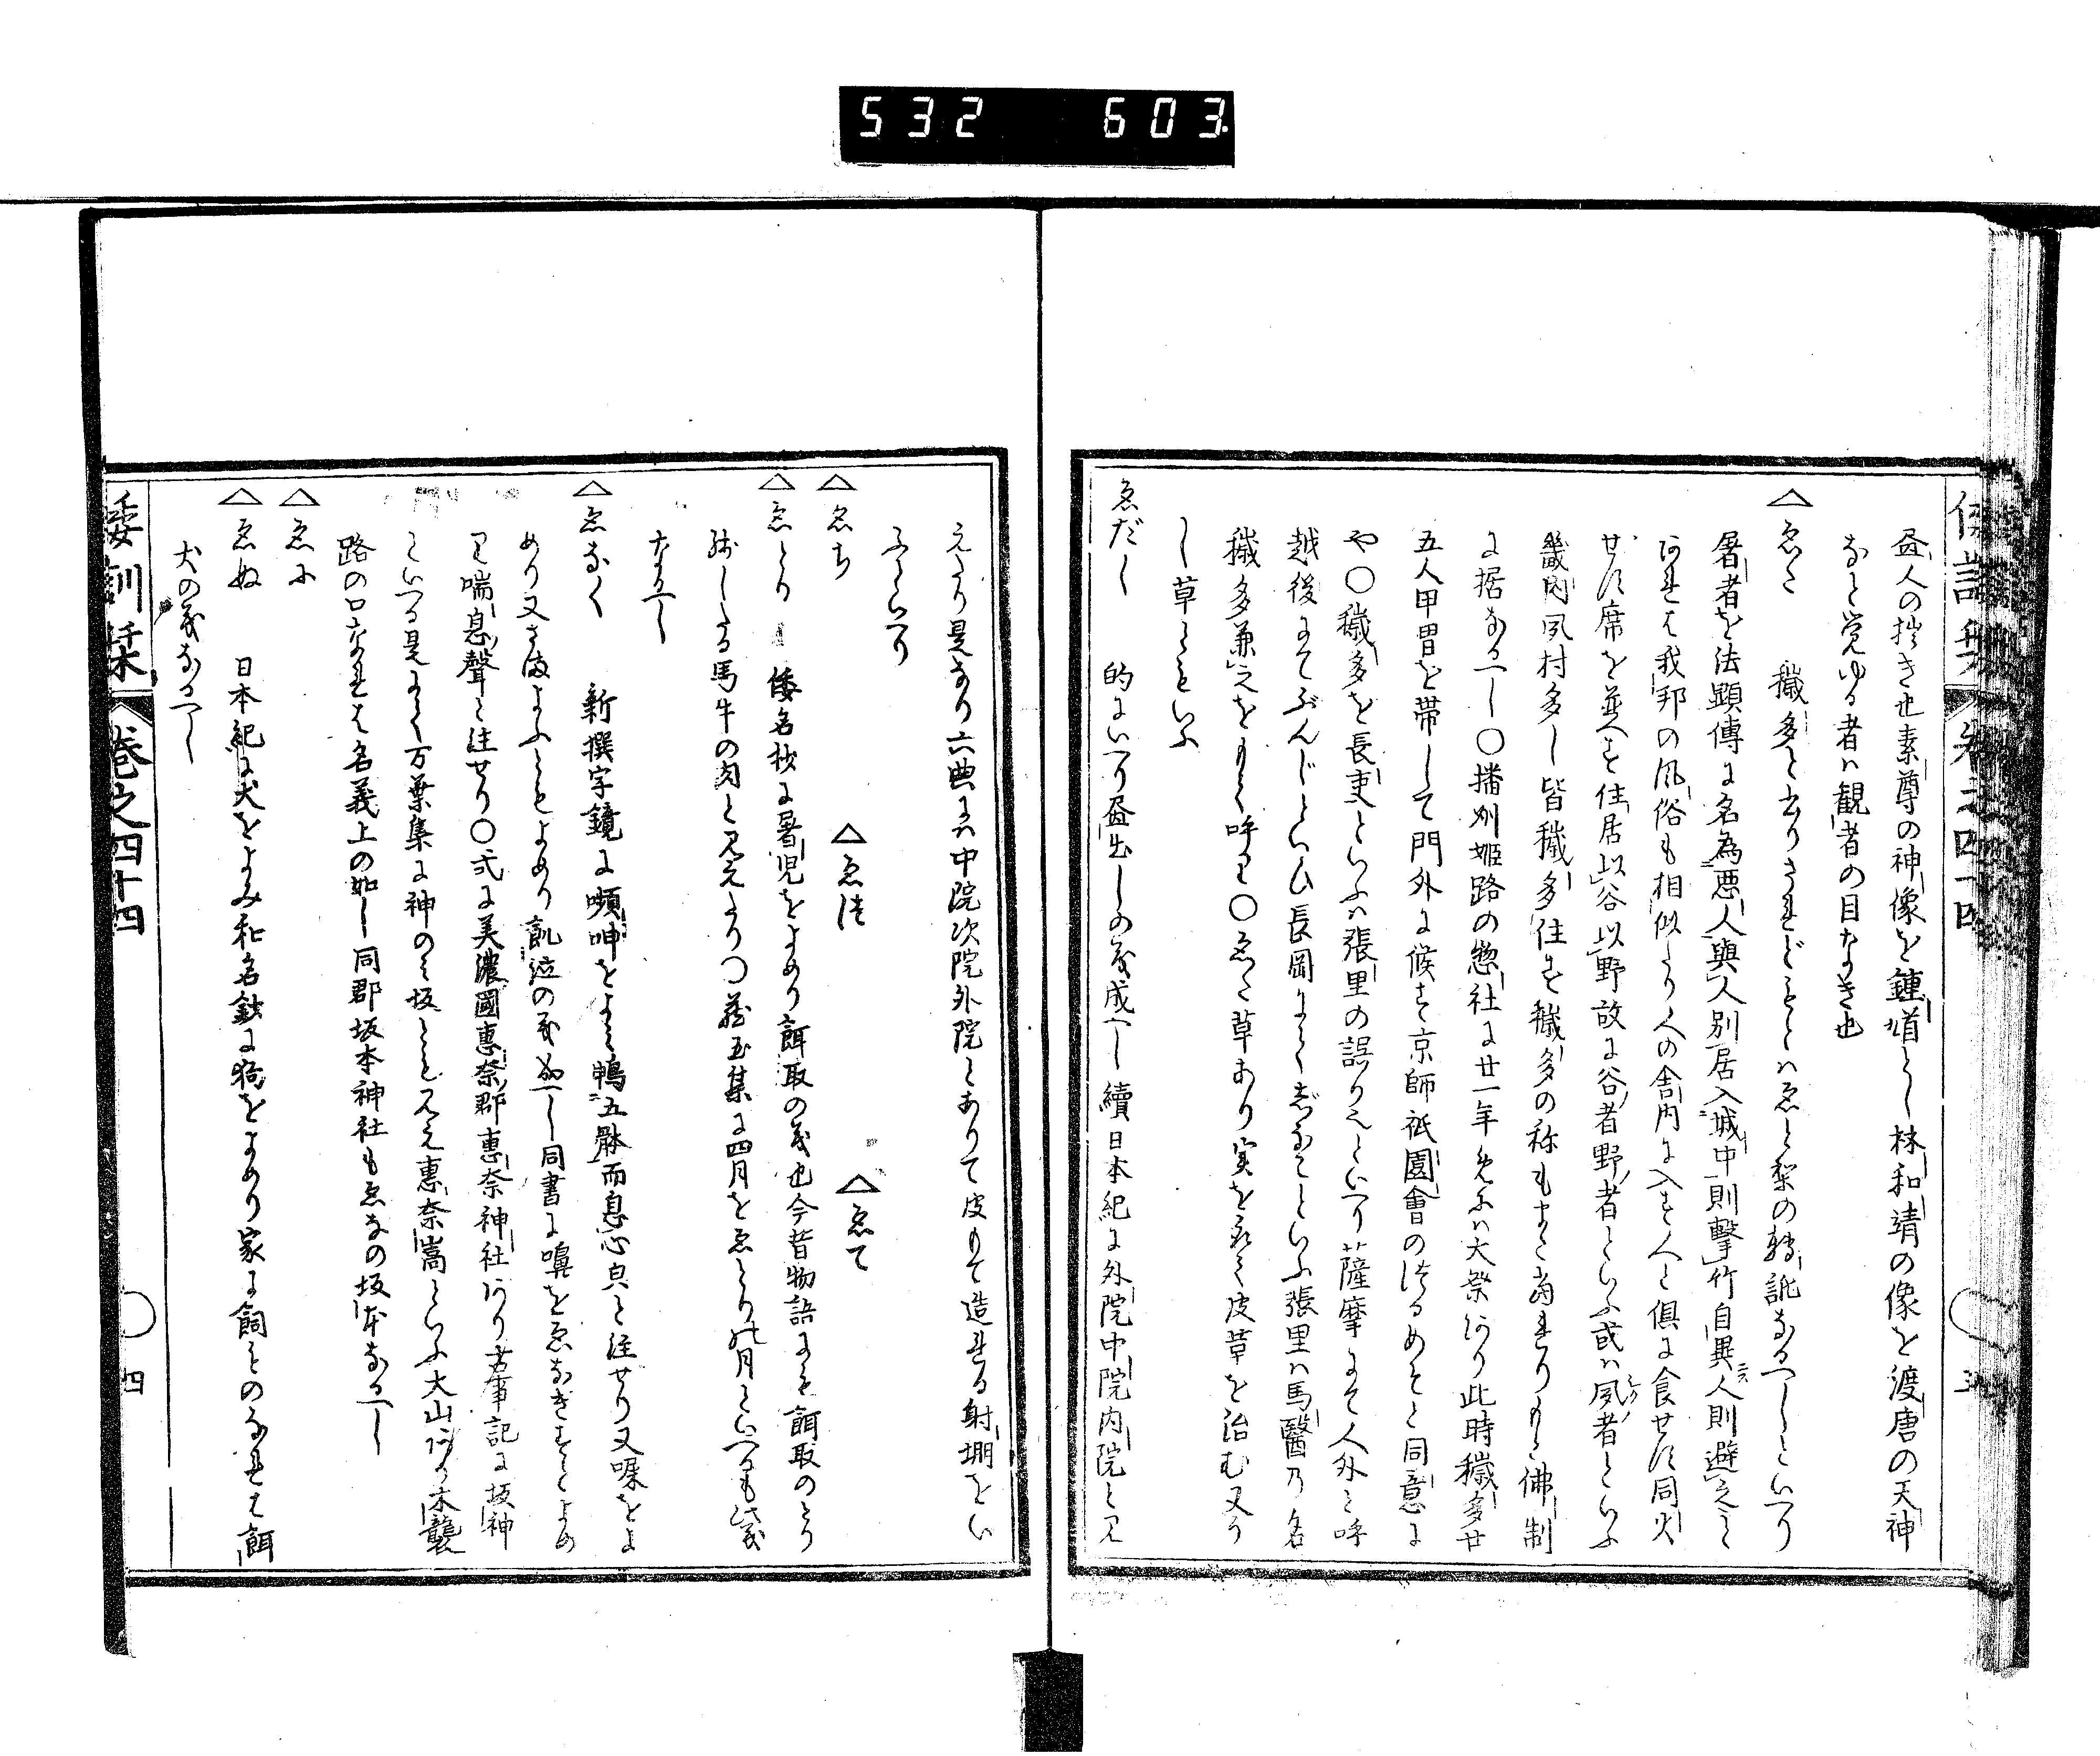 532 603
昼人の拙き也素尊の神像を鍾馗とし林和靖の像を渡唐の天神
なと覚ゆる者ハ観者の目なき也
△ゑた 穢多と書りされどもとハゑと梨の転訛なるへしといへり
屠者を法顕傳に名為悪人與人別居入城中則撃竹自異人則避之と
あれは我邦の風俗も相似たり人の舎内に入す人と倶に食せす同火
せす席を並へす住居以谷以野故に谷者野者といふ或ハ夙者といふ
畿内夙村多し皆穢多住す穢多の称もまた當れりもと佛制
に据なるへし〇播州姫路の惣社に廿一年めにハ大祭あり此時穢多廿
五人甲冑を帯して門外に候す京師祇園會のつるめそと同意に
や〇穢多を長吏といふハ張里の誤りといへり薩摩にて人外と呼
越後にてぶんじといひ長岡にてしなことといふ張里ハ馬醫乃名
穢多兼之をもて呼り〇ゑた草あり実を取て皮草を治む又う
し草ともいふ
ゑだし 的にいへり画出しの義成へし續日本紀に外院中院内院と見
倭訓栞 巻之四十四
えたり是なり六典にハ中院次院外院とありて皮もて造れる射堋をい
ふといへり
△ゑち △ゑつ △ゑて
△ゑとり 倭名抄に屠児をよめり餌取の義也今昔物語にも餌取のとり
残したる馬牛の肉と見えたり〇蔵玉集に四月をゑとりは月といへるも此義
なるへし
△ゑなく 新撰字鏡に嚬呻をよミ鴨五躰而息心皃と注せり又㗱をよ
めり又さまよふともよめり飢泣の義なるへし同書に嚊をゑなきすとよめ
り喘息聲と注せり〇式に美濃國恵奈郡恵奈神社あり古事記に坂神
といへる是にて万葉集に神のミ坂ともみえ恵奈嵩といふ大山あり木襲
路の口なれは名義上の如し同郡坂本神社もゑなの坂本なるへし
△ゑに
△ゑぬ 日本紀に犬をよみ和名鈔に狗をよめり家に飼ものなれは餌
犬の義なるへし
倭訓栞 巻之四十四 〇 四